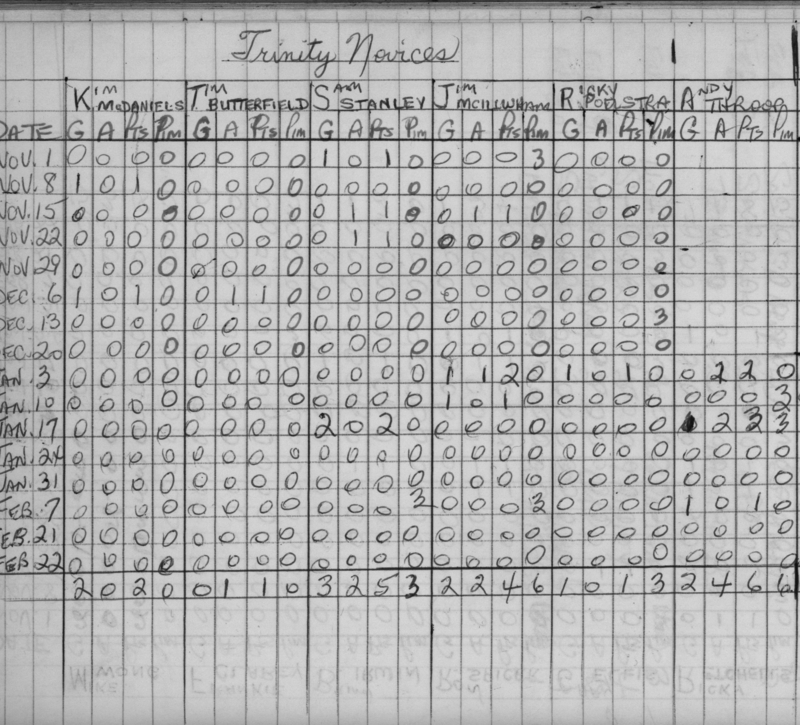 Trinity Novices
KIM McDANIELS TIM BUTTERFIELD SAM STANLEY JIM McILLWHAM RICKY POELSTRA ANDY THROOP
DATE G A Pts Pim G A Pts Pim G A Pts Pim G A Pts Pim G A Pts Pim G A Pts Pim
NOV. 1 0 0 0 0 0 0 0 0 1 0 1 0 0 0 0 3 0 0 0 0
NOV. 8 1 0 1 0 0 0 0 0 0 0 0 0 0 0 0 0 0 0 0 0
NOV. 15 0 0 0 0 0 0 0 0 0 1 1 0 0 1 1 0 0 0 0 0
NOV. 22 0 0 0 0 0 0 0 0 0 1 1 0 0 0 0 0 0 0 0 0
NOV. 29 0 0 0 0 0 0 0 0 0 0 0 0 0 0 0 0 0 0 0 0
DEC. 6 1 0 1 0 0 1 1 0 0 0 0 0 0 0 0 0 0 0 0 0
DEC. 13 0 0 0 0 0 0 0 0 0 0 0 0 0 0 0 0 0 0 0 3
DEC. 20 0 0 0 0 0 0 0 0 0 0 0 0 0 0 0 0 0 0 0 0
JAN. 3 0 0 0 0 0 0 0 0 0 0 0 0 1 1 2 0 1 0 1 0 0 2 2 0
JAN. 10 0 0 0 0 0 0 0 0 0 0 0 0 1 0 1 0 0 0 0 0 0 0 0 3
JAN. 17 0 0 0 0 0 0 0 0 2 0 2 0 0 0 0 0 0 0 0 0 1 2 3 3
JAN. 24 0 0 0 0 0 0 0 0 0 0 0 0 0 0 0 0 0 0 0 0 0 0 0 0
JAN. 31 0 0 0 0 0 0 0 0 0 0 0 0 0 0 0 0 0 0 0 0 0 0 0 0
FEB. 7 0 0 0 0 0 0 0 0 0 0 0 3 0 0 0 3 0 0 0 0 1 0 1 0
FEB. 21 0 0 0 0 0 0 0 0 0 0 0 0 0 0 0 0 0 0 0 0 0 0 0 0
FEB 22 0 0 0 0 0 0 0 0 0 0 0 0 0 0 0 0 0 0 0 0 0 0 0 0
2 0 2 0 0 1 1 0 3 2 5 3 2 2 4 6 1 0 1 3 2 4 6 6